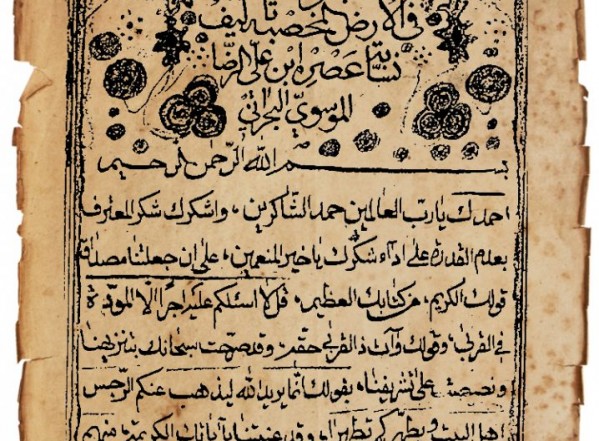 في الأرض المخصبة تأليف
نسابة عصره ابن علي الرضا
الموسوي البحراني
بسم الله الرحمن الرحيم
احمدك يا رب العالمين حمد الشاكرين، واشكرك شكر المعترف
بعدم القدرة على اداء شكرك يا خير المنعمين، على ان جعلتنا مصداق
قولك الكريم، من كتابك العظيم، قل لا اسئلكم عليه اجرا الا المودة
في القربى، وقولك وآت ذا القربى حقه، وقد صرحت سبحانك بتنزيهنا
ونصصت على تشريفنا، بقولك انما يريد الله ليذهب عنكم الرجس
اهل البيت ويطهركم تطهيرا، وقد بآياتك الكريمة،